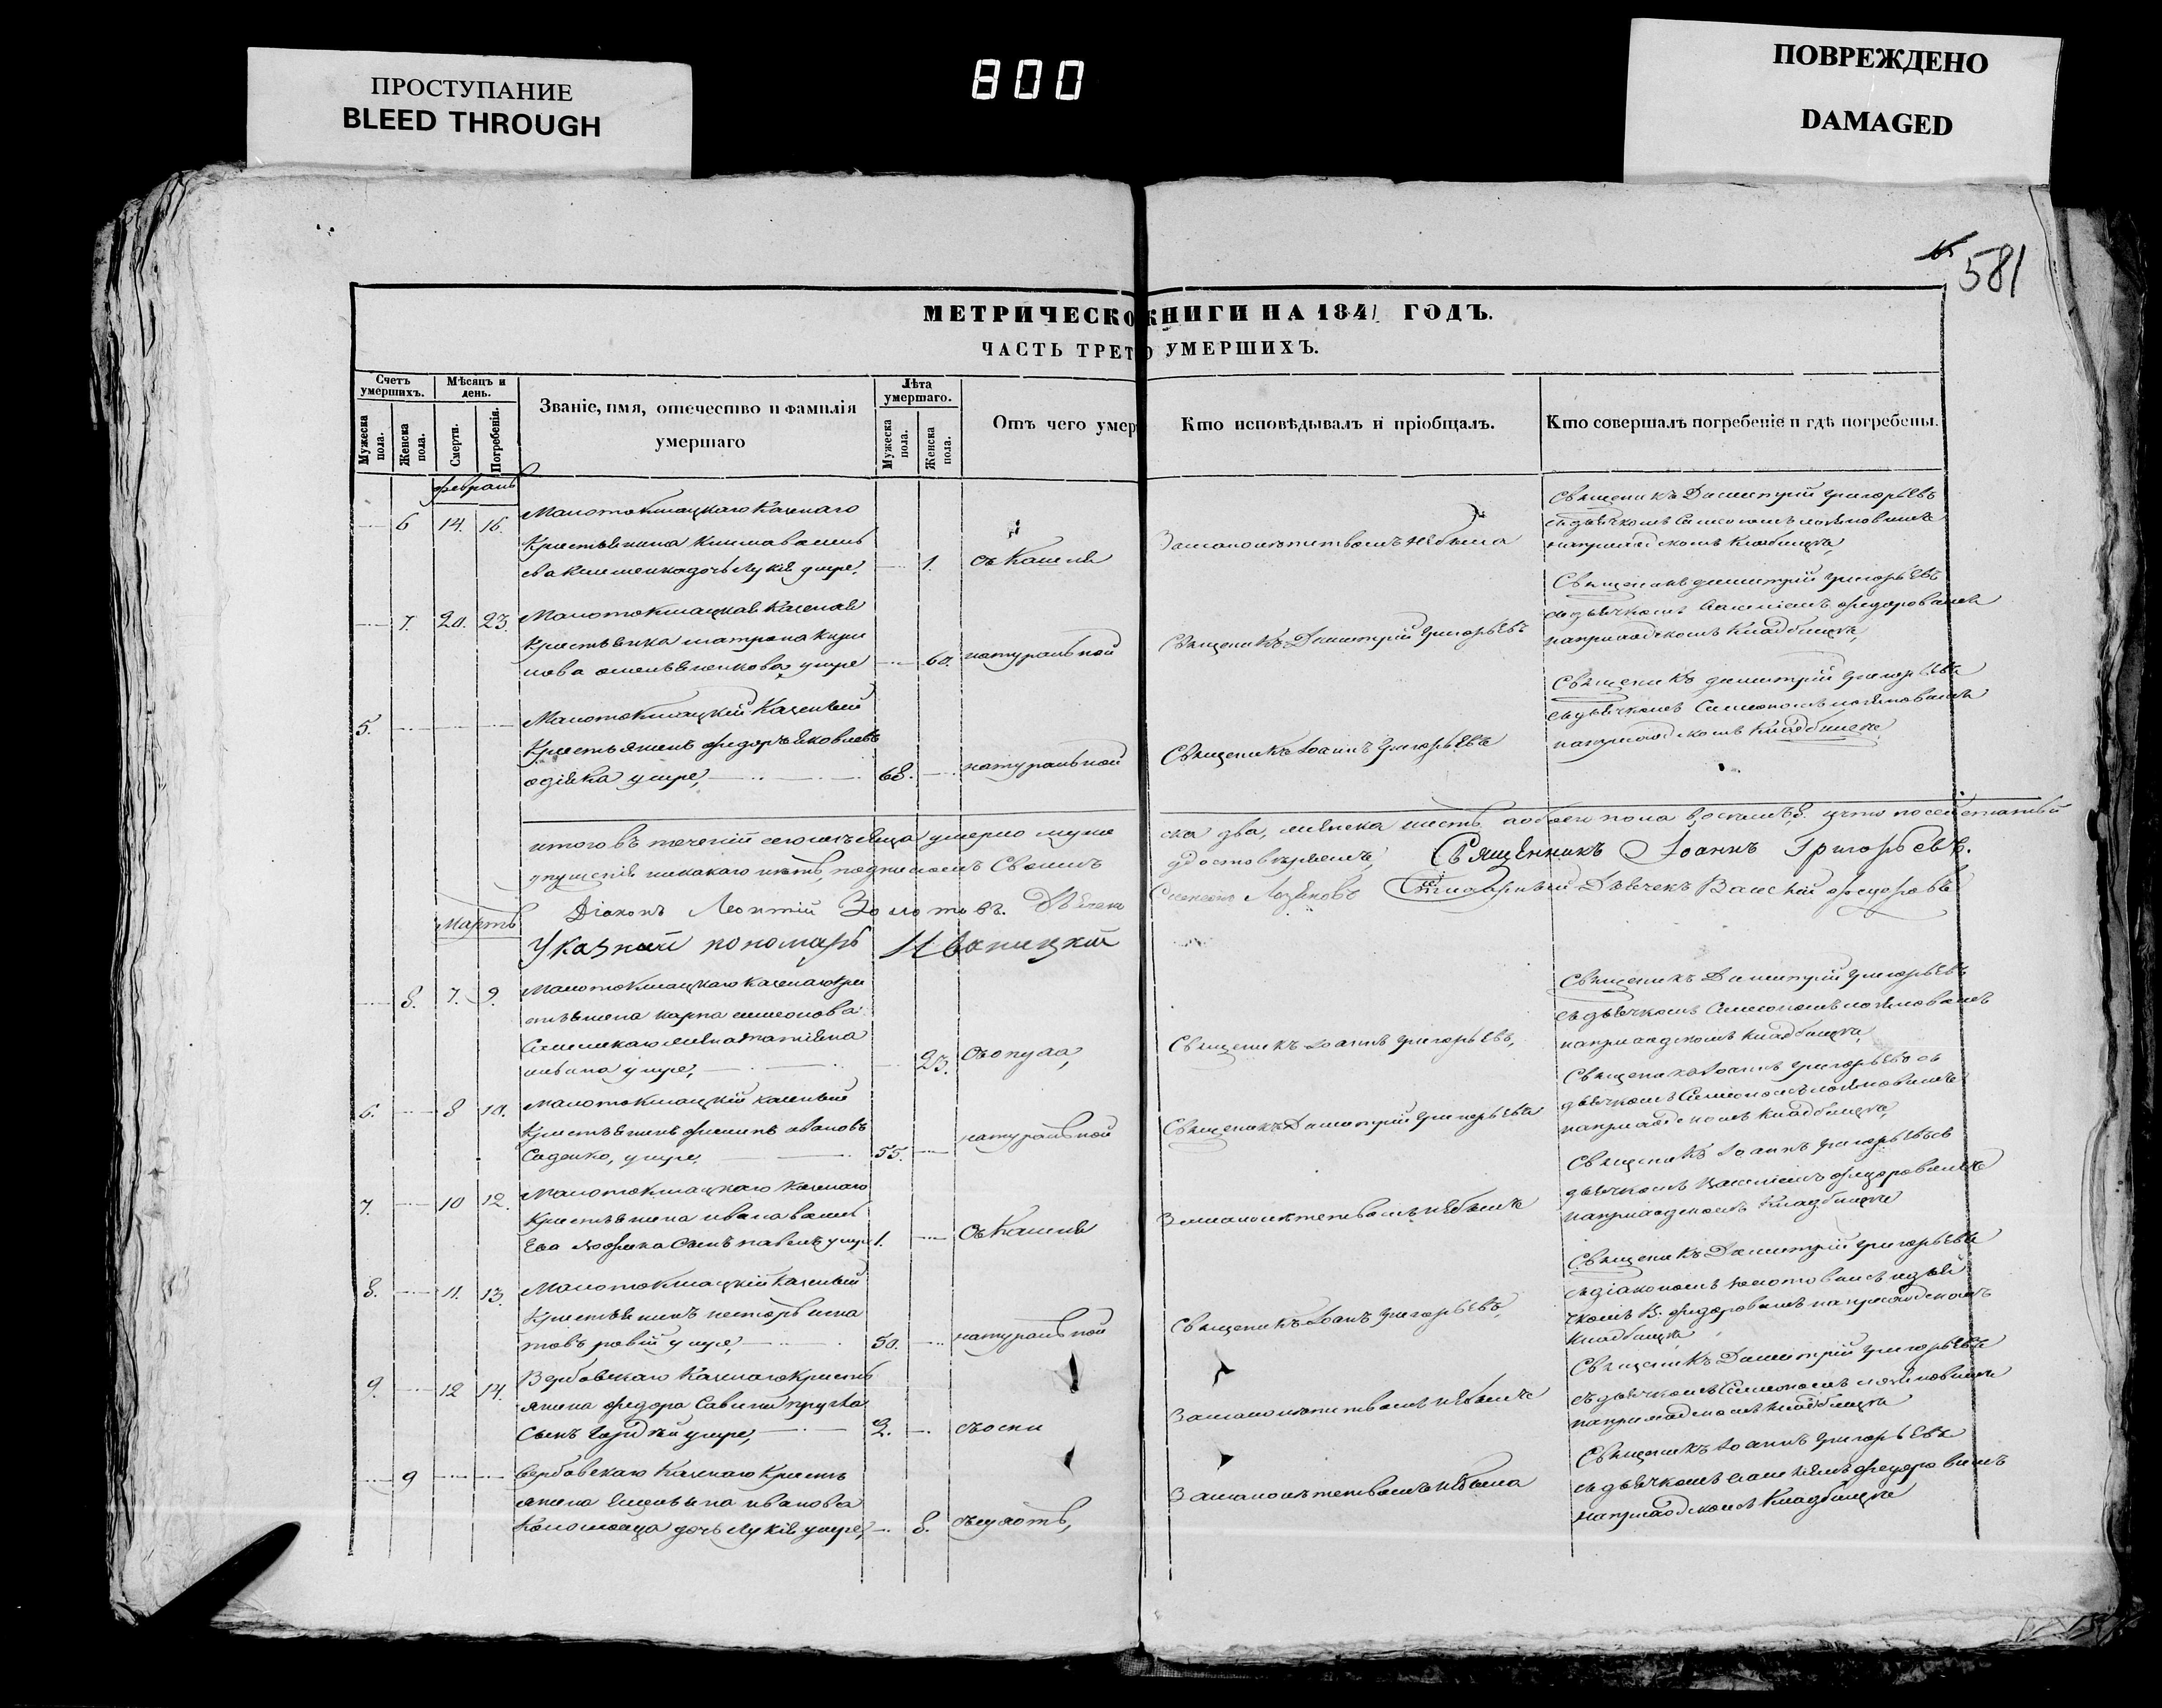 ПРОСТУПАНИЕ
BLEED THROUGH
800
ПОВРЕЖДЕНО
DAMAGED
581
МЕТРИЧЕСКО КНИГИ НА 1841 ГОДЪ.
ЧАСТЬ ТРЕТ О УМЕРШИХЪ.
Счетъ умершихъ.
Мужеска пола.
Женска пола.
Мѣсяцъ и день.
Смерти.
Погребенія.
Званіе, имя, отечество и фамилія
умершаго
Лѣта умершаго.
Мужеска пола.
Женска пола.
Отъ чего умер
Кто исповѣдывалъ и пріобщалъ.
Кто совершалъ погребеніе и гдѣ погребены.
февраль
6 14. 16.
Малотокмацкаго Казенаго
Крестьянина Клима
дочь Лукія умре,
1.
съ Кашля
За малолетствомъ небыла
Священикъ Димитрій Григорьевъ
съ дьячкомъ Симеономъ
на приходскомъ Кладбище,
7. 20. 23.
Малотокмацкая Казеная
Крестьянка матрона
умре
60.
натуральной
Священикъ Димитрій Григорьевъ
Священикъ димитрій Григорьевъ
съ дьячкомъ Василіемъ Федоровымъ
на приходскомъ Кладбище,
5.
Малотокмацкій Казенный
Крестьянинъ Федоръ Яковлевъ
умре,
68.
натуральной
Священикъ Іоаннъ Григорьевъ
Священикъ димитрій Григорьевъ
съ дьячкомъ Симеономъ
на приходскомъ Кладбище
итого въ теченіи сего месяца умерло муже
ска два, женска шесть а обоего пола восемь, 8. что по сей статьи
упущенія никакого нетъ, подписомъ Своимъ
удостовъряемъ, Священникъ Іоаннъ Григорьевъ.
Діаконъ Леонтій Золотовъ. Дьячекъ
Симеонъ Дьячекъ Василій Федоровъ
Мартъ
Указный пономарь Иваницкій
8. 7. 9.
Малотокмацкаго казенаго кре
стьянина карпа симеонова
умре,
23.
Священикъ Іоаннъ Григорьевъ,
Священикъ Димитрій Григорьевъ
съ дьячкомъ Симеономъ
на приходскомъ кладбище,
6. 8 10.
Малотокмацкій казенный
Крестьянинъ Филипъ ивановъ
Саенко, умре,
55.
натуральной
Священикъ Димитрій Григорьевъ
Священикъ Іоаннъ Григорьевъ съ
дьячкомъ Симеономъ
на приходскомъ кладбище,
7. 10 12.
Малотокмацкаго Казенаго
Крестьянина ивана василь
ева Сынъ павелъ умре
1.
съ Кашля
За малолетствомъ небылъ
Священикъ Іоаннъ Григорьевъ съ
дьячкомъ Василіемъ Федоровымъ
на приходскомъ Кладбище
8. 11. 13.
Малотокмацкій Казенный
Крестьянинъ несторъ игна
товъ умре,
50.
натуральной
Священикъ Іоанъ Григорьевъ,
Священикъ Димитрій Григорьевъ
съ діакономъ золотовымъ и дья
чкомъ В. Федоровымъ на приходскомъ
кладбище
9. 12 14.
Вербовскаго Казенаго Кресть
янина Федора Савина
Сынъ Гордѣй умре,
2.
съ оспи
За малолетствомъ небылъ
Священикъ Димитрій Григорьевъ
съ дьячкомъ Симеономъ
на приходскомъ кладбище
9
Вербовскаго Казенаго Кресть
янина иванова
Коломойца дочь Лукія умре,
8.
За малолетствомъ небыла
Священикъ Іоаннъ Григорьевъ
съ дьячкомъ Василіемъ Федоровымъ
на приходскомъ Кладбище